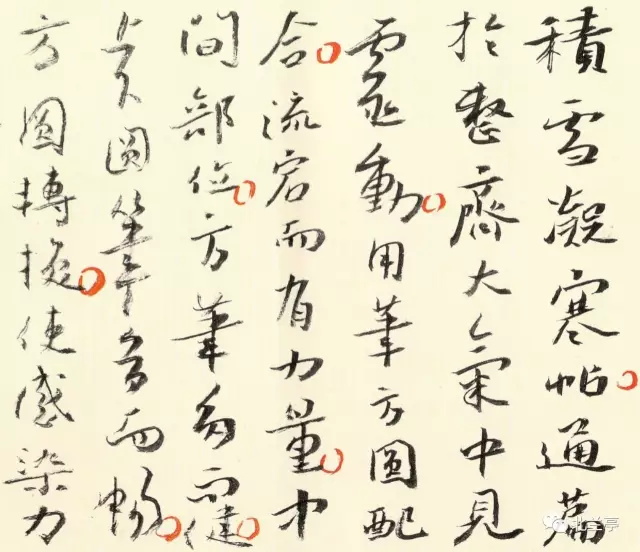 積雪凝寒帖通篇
於整齊大氣中見
靈動用筆方圓配
合流宕而有力量中
間部位方筆多而健
圓筆多而暢
方圓轉換使感染力
北兰亭